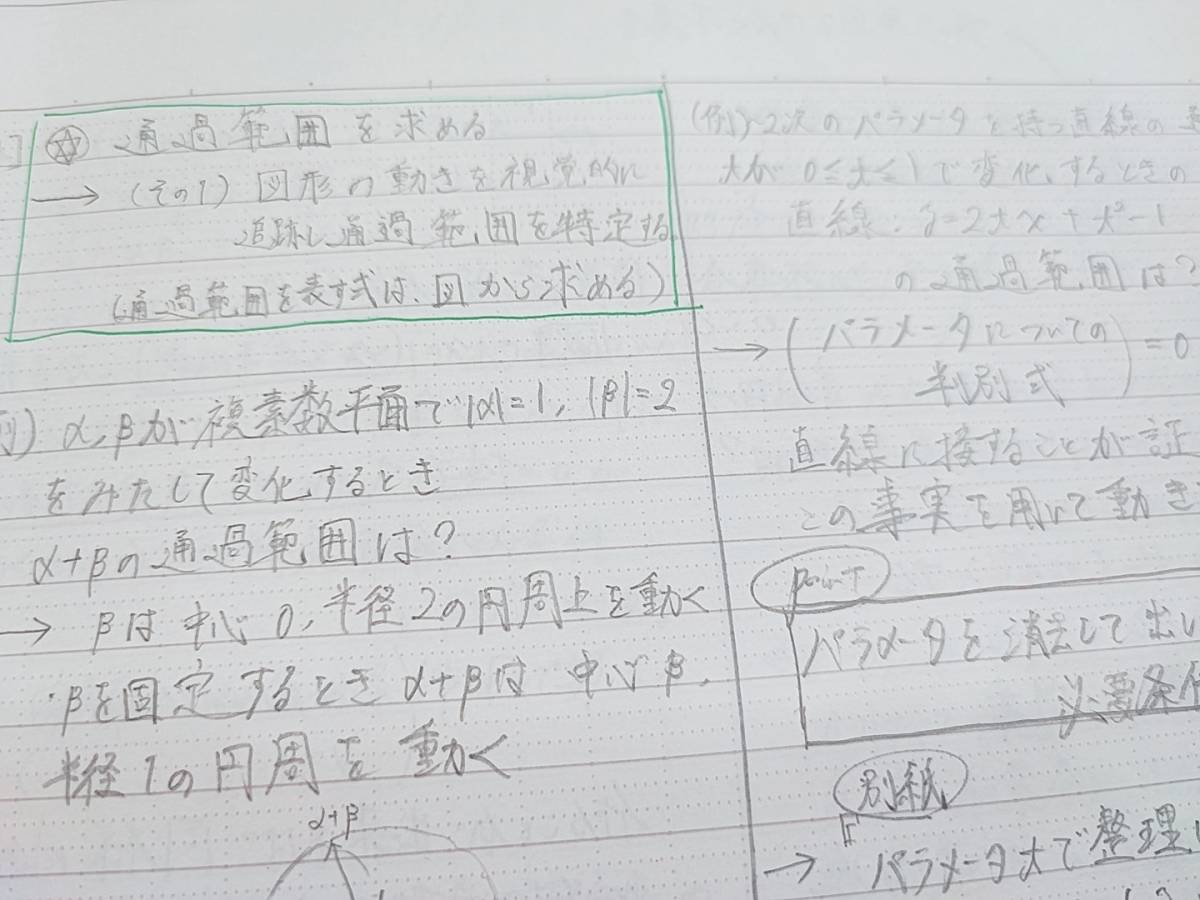 通過範囲を求める
→ (その1) 図形の動きを視覚的に
追跡し通過範囲を特定する
(通過範囲を表す式は、図から求める)
例) α, βが複素数平面で|α|=1, |β|=2
をみたして変化するとき
α+βの通過範囲は?
→ βは中心0, 半径2の円周上を動く
・βを固定するときα+βは中心β,
半径1の円周を動く
α+β
(例1) 2次のパラメータを持つ直線の
tが0≦t≦1で変化するときの
直線: y=2tx+t²-1
の通過範囲は?
→ (パラメータについての
判別式) = 0
直線に接することが証
この事実を用いて動き
point
パラメータを消去して
必要条件
別紙
→ パラメータtで整理